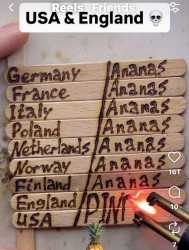 Reels Friends
USA & England 💀
Germany / Ananas
France / Ananas
Italy / Ananas
Poland / Ananas
Netherlands / Ananas
Norway / Ananas
Finland / Ananas
England / PIN
USA
16T
10
7